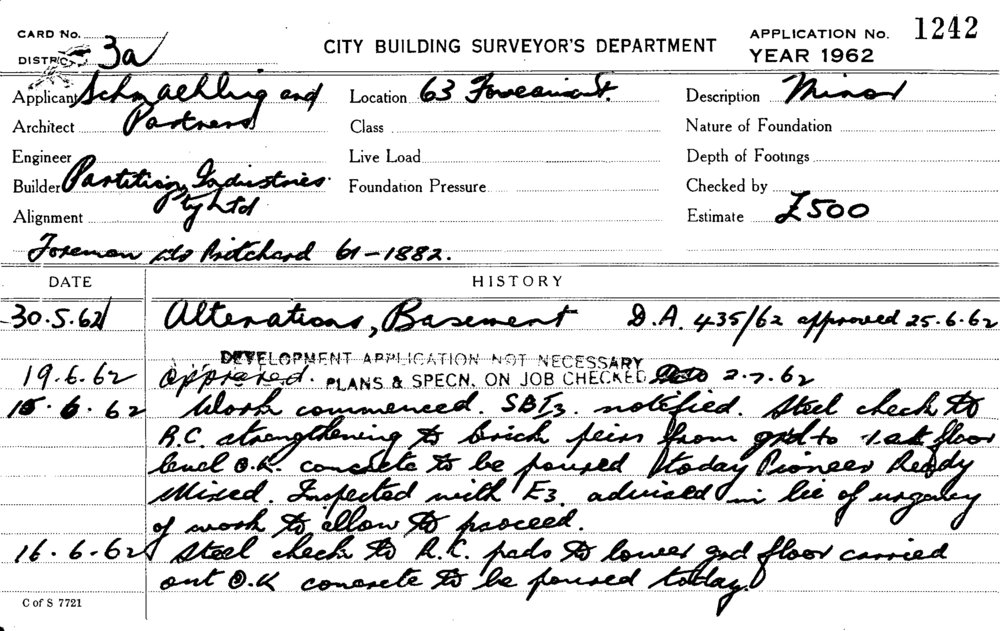 CARD No.
DISTRICT 3a
CITY BUILDING SURVEYOR'S DEPARTMENT
APPLICATION No. 1242
YEAR 1962
Applicant Schmaehling and
Location 63 St.
Description Minor
Architect Partners
Class
Nature of Foundation
Engineer
Live Load
Depth of Footings
Builder Partition Industries
Pty Ltd
Foundation Pressure
Checked by
Alignment
Estimate £500
Foreman Pritchard 61-1882.
DATE
HISTORY
30.5.62 Alterations, Basement D.A. 435/62 approved 25.6.62
DEVELOPMENT APPLICATION NOT NECESSARY
19.6.62 approved. PLANS & SPECN. ON JOB CHECKED 2.7.62
15.6.62 Work commenced. SBI3. notified. Steel check to
R.C. strengthening to brick peirs from grd to 1st floor
level O.K. concrete to be poured today Pioneer Ready
Mixed. Inspected with E3. advised in lie of urgency
of work to allow to proceed.
16.6.62 Steel check to R.C. pads to lower grd floor carried
out O.K concrete to be poured today.
C of S 7721